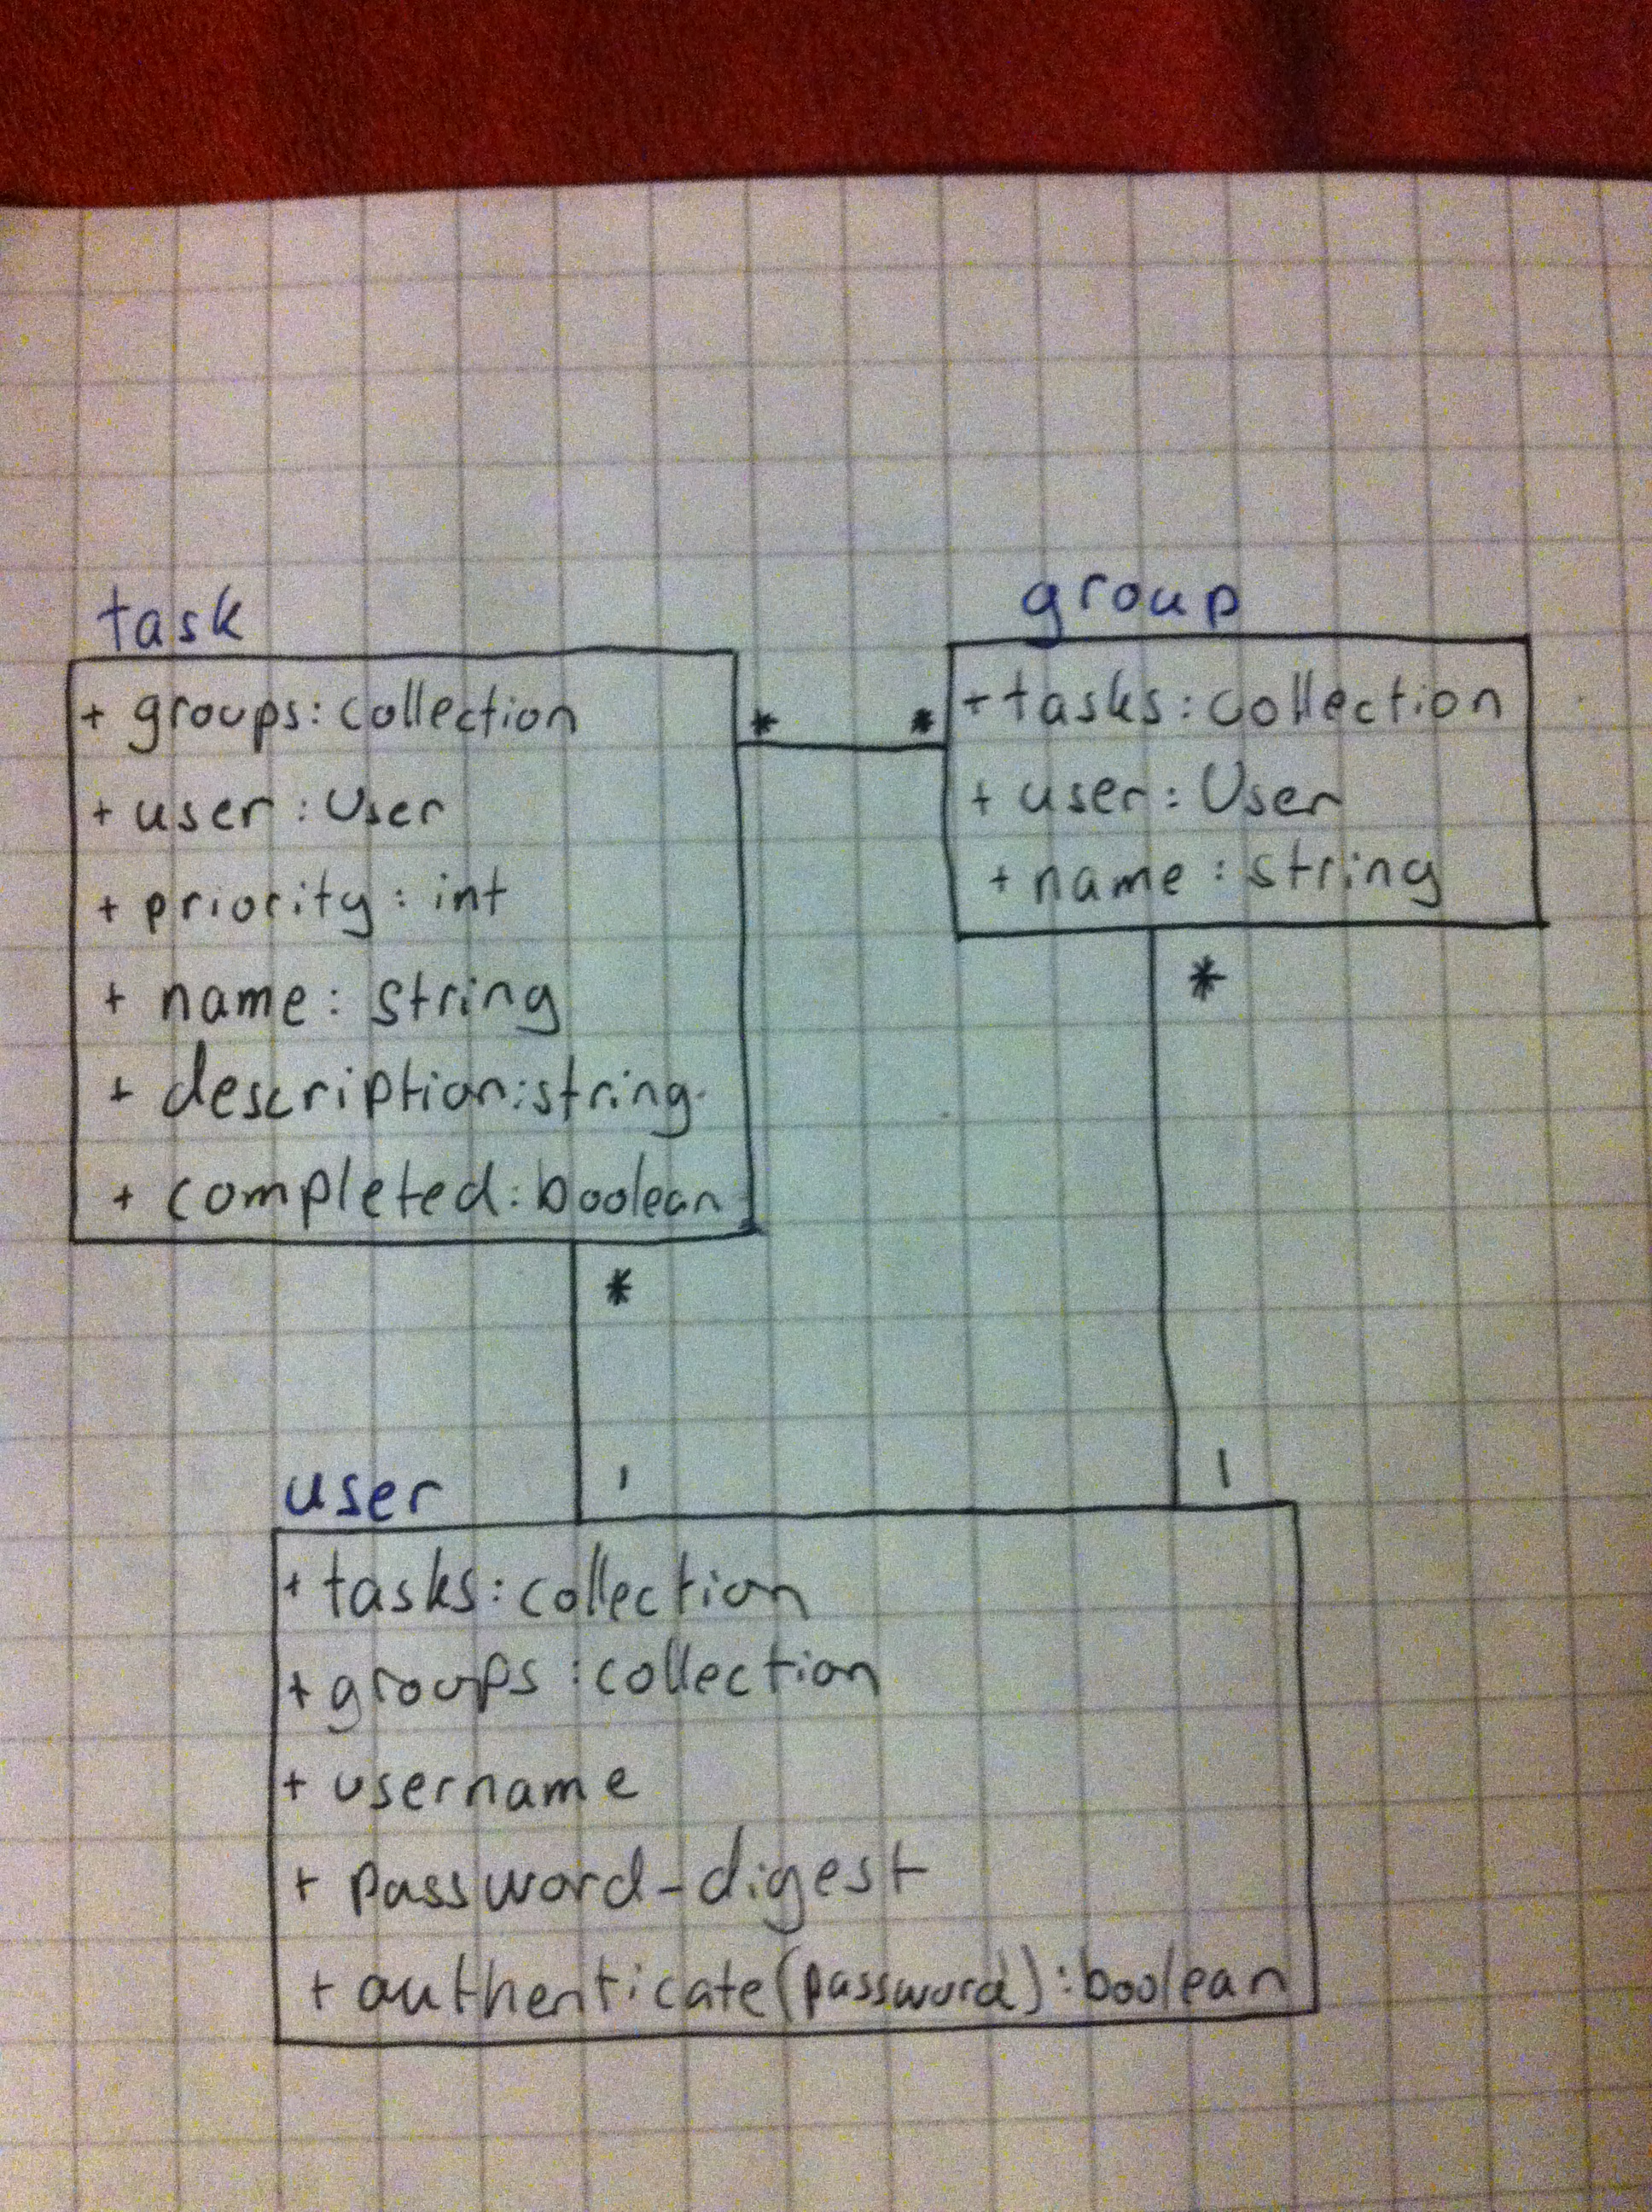 task
+ groups: collection
+ user: User
+ priority: int
+ name: string
+ description:string
+ completed: boolean
* *
group
+ tasks: collection
+ user: User
+ name: string
*
1
*
1
user
+ tasks: collection
+ groups: collection
+ username
+ password_digest
+ authenticate(password): boolean